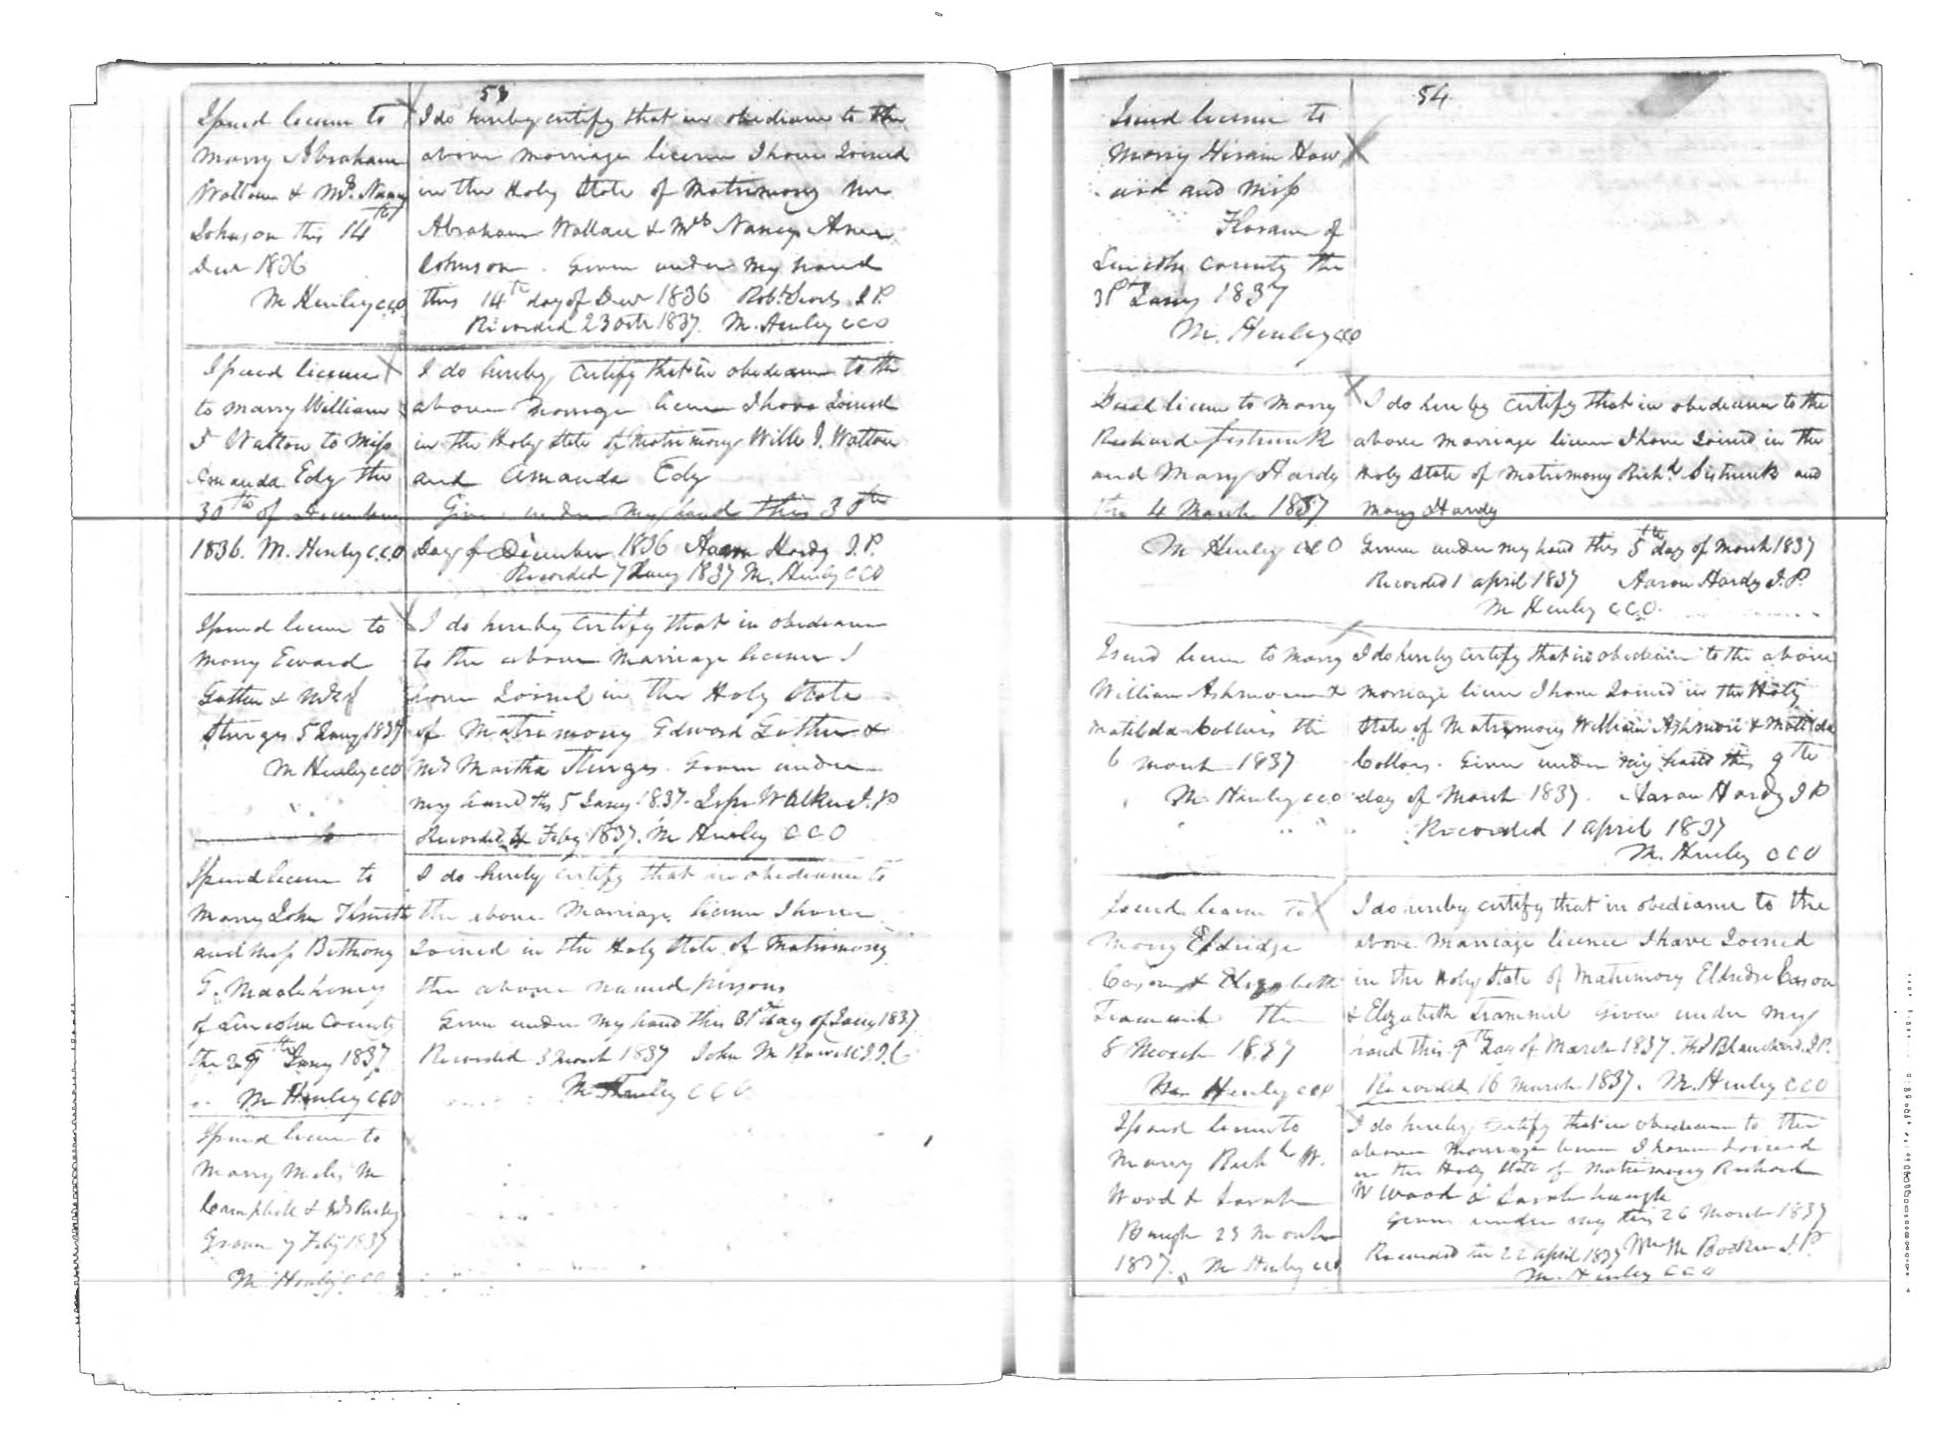 53
Issued licence to
Marry Abraham
Wallace & Mrs Nancy
Johnson this 14th
Decr 1836
M Henley CCO
I do hereby certify that in obediance to the
above marriage licence I have Joined
in the Holy State of Matrimony Mr
Abraham Wallace & Mrs Nancy Ann
Johnson. Given under my hand
this 14th day of Decr 1836 Robt J.P.
Recorded 23 Octr 1837. M. Henley CCO
Issued licence
to marry William
J Walton to Miss
Amanda Edy the
30th of December
1836. M. Henley C.C.O
I do hereby certify that in obediance to the
above marriage licence I have Joined
in the Holy State of Matrimony Willm J. Walton
and Amanda Edy
Given under my hand this 30th
day of December 1836 Aaron Hardy J.P.
Recorded 7 Jany 1837 M. Henley CCO
Issued licence to
marry Edward
& Mrs
Sturges 5 Jany 1837
M Henley CCO
I do hereby certify that in obediance
to the above marriage licence I
have Joined in the Holy State
of Matrimony Edward &
Mrs Martha Sturges. Given under
my hand this 5 Jany 1837. Walker J.P
Recorded 4 Feby 1837. M Henley CCO
Issued licence to
Marry John Smith
and Miss Bethony
G.
of Lincoln County
the 29th Jany 1837
M Henley CCO
I do hereby certify that in obediance to
the above Marriage licence I have
Joined in the Holy State of Matrimony
the above named persons
Given under my hand this 31st day of Jany 1837
Recorded 3 March 1837 John M J.I.C
M Henley CCO
Issued licence to
Marry M
Campbell & Mrs
7 Feby 1837
M Henley CCO
54
Issued licence to
Marry Hiram How
ard and Miss
of
Lincoln County the
31st Jany 1837
M. Henley CCO
Issued licence to Marry
Richard Sistrunk
and Mary Hardy
the 4 March 1837
M Henley CCO
I do hereby certify that in obediance to the
above marriage licence I have Joined in the
Holy State of Matrimony Richd Sistrunk and
Mary Hardy
Given under my hand this 5th day of March 1837
Recorded 1 April 1837 Aaron Hardy J.P.
M Henley CCO.
Issued licence to Marry
William Ashmore &
Matilda Collins the
6 March 1837
M. Henley CCO
I do hereby certify that in obediance to the above
marriage licence I have Joined in the Holy
State of Matrimony William Ashmore & Matilda
Collons. Given under my hand this 9th
day of March 1837. Aaron Hardy J P
Recorded 1 April 1837
M. Henley CCO
Issued licence to
Marry Eldridge
Cason & Elizabeth
the
8 March 1837
M Henley CCO
I do hereby certify that in obediance to the
above marriage licence I have Joined
in the Holy State of Matrimony Eldridge Cason
& Elizabeth Trammel Given under my
hand this 9th day of March 1837. Thos Blanchard J.P.
Recorded 16 March 1837. M. Henley CCO
Issued licence to
Marry Richd W.
Wood & Sarah
Baugh 23 March
1837. M Henley CCO
I do hereby certify that in obediance to the
above Marriage licence I have Joined
in the Holy State of Matrimony Richard
W Wood & Sarah
Given under my this 26 March 1837
Recorded the 22 April 1837 Wm M Booker J.P.
M. Henley CCO